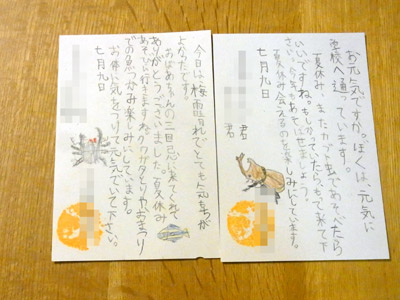 お元気ですか。ぼくは、元気に
学校へ通っています。
夏休み、またカブト虫であそべたら
いいですね。もしかっていたらもって来て下
さい。今年も
夏休み会えるのを楽しみにしています。
七月九日
君
君
今日は梅雨晴れでとても気もちが
よかったです。
おばあちゃんの三回忌に来てくれて
ありがとうございました。夏休み
あそびに行きますね。クワガタとりやおまつり
での魚つかみ楽しみにしています。
お体に気をつけて元気でいて下さい。
七月九日